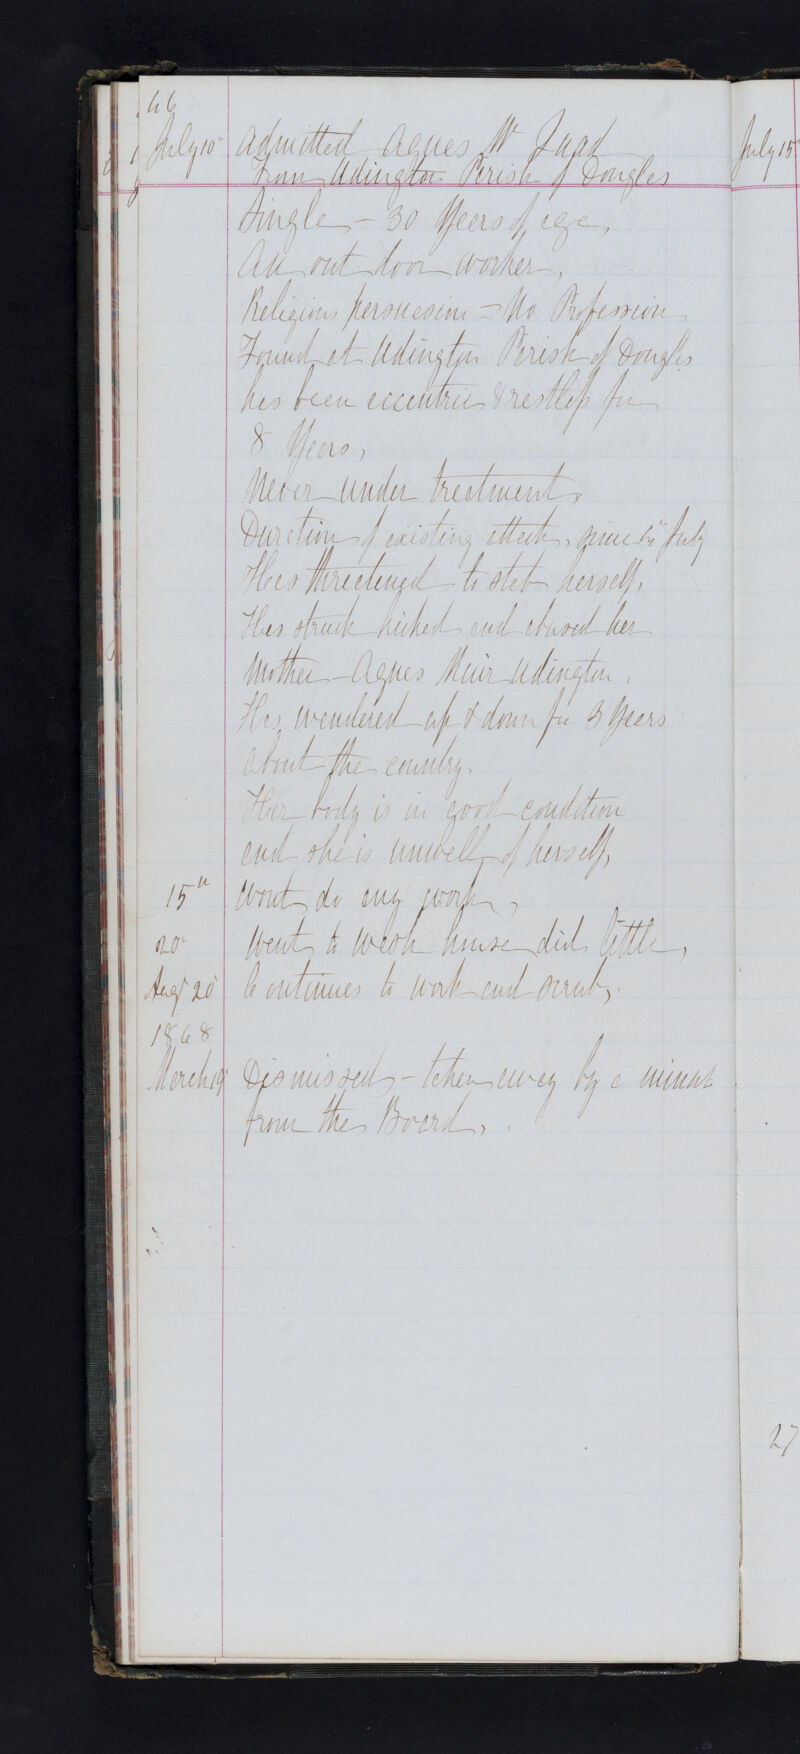 66
July 10th Admitted Agnes Mc
From Udington Parish of Douglas
Single - 30 Years of age,
An out door worker,
Religious persuasion - No Profession
Found at Udington Parish of Douglas
has been eccentric & restless for
8 Years,
Never under treatment,
Duration of existing attack, since July
Has threatened to stab herself,
Has struck kicked and abused her
Mother - Agnes Muir Udington,
Has wandered up & down for 3 Years
about the country.
Her body is in good condition
and she is unwell of herself,
15th Wont do any work,
20th Went to wash house did little,
Augt 20th Continues to work and scrub,
1868
March 19th Dismissed - taken away by a minat
from the Board,
July 15th
27